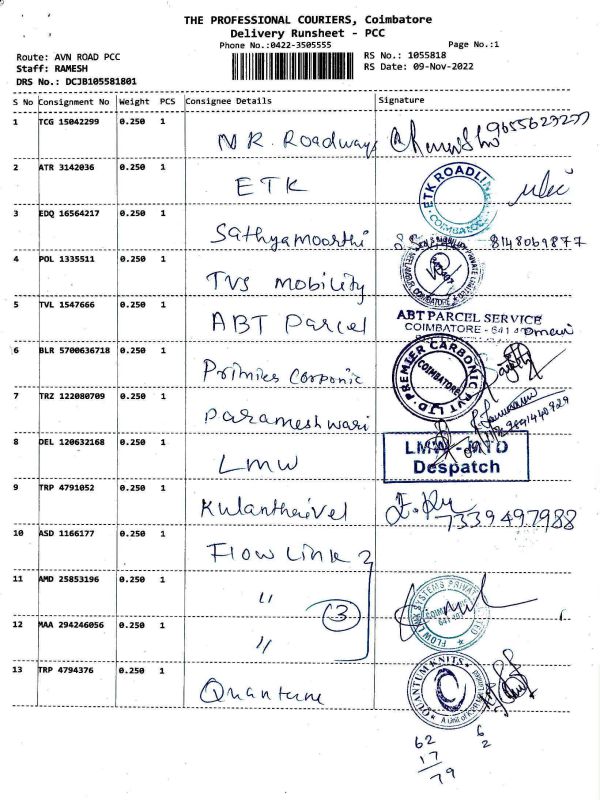 THE PROFESSIONAL COURIERS, Coimbatore
Delivery Runsheet - PCC
Phone No.:0422-3505555 Page No.:1
Route: AVN ROAD PCC RS No.: 1055818
Staff: RAMESH RS Date: 09-Nov-2022
DRS No.: DCJB105581801
S No Consignment No Weight PCS Consignee Details Signature
1 TCG 15042299 0.250 1 M.R. Roadways 9655623277
2 ATR 3142036 0.250 1 ETK ETK ROADLI COIMBATORE
3 EDQ 16564217 0.250 1 Sathyamoorthi 8148069877
4 POL 1335511 0.250 1 TVS Mobility
5 TVL 1547666 0.250 1 ABT Parcel ABT PARCEL SERVICE
COIMBATORE - 641
6 BLR 5700636718 0.250 1 Primies Corponic PREMIER CARBONIC PVT LTD COIMBATORE
7 TRZ 122080709 0.250 1 Parameshwari
8 DEL 120632168 0.250 1 LMW LMW - MTD
Despatch
9 TRP 4791052 0.250 1 Kulanthaivel 7339497988
10 ASD 1166177 0.250 1 Flow Link
11 AMD 25853196 0.250 1 "
3
12 MAA 294246056 0.250 1 " FLOW LINK SYSTEMS PRIVATE LIMITED
13 TRP 4794376 0.250 1 Quantum QUANTUM KNITS
62 6
17 2
79